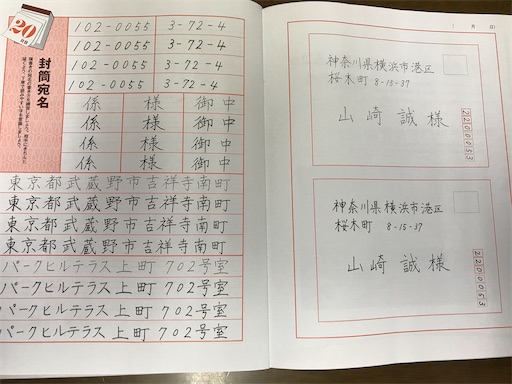 20
日目
封筒宛名
102-0055 3-72-4
102-0055 3-72-4
102-0055 3-72-4
102-0055 3-72-4
係 様 御中
係 様 御中
係 様 御中
係 様 御中
東京都武蔵野市吉祥寺南町
東京都武蔵野市吉祥寺南町
東京都武蔵野市吉祥寺南町
東京都武蔵野市吉祥寺南町
パークヒルテラス上町702号室
パークヒルテラス上町702号室
パークヒルテラス上町702号室
パークヒルテラス上町702号室
( 月 日)
神奈川県横浜市港区
桜木町 8-15-37
山崎 誠 様
2200053
神奈川県横浜市港区
桜木町 8-15-37
山崎 誠 様
2200053